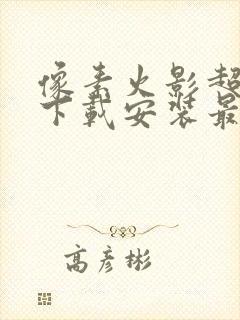 像素火影超
下载安装最
高彦彬